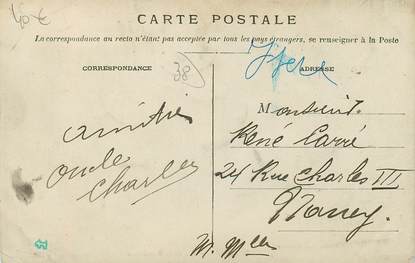 40 €
CARTE POSTALE
La correspondance au recto n'étant pas acceptée par tous les pays étrangers, se renseigner à la Poste
CORRESPONDANCE
38
Isère
ADRESSE
Monsieur
René Carré
24 Rue Charles III
Nancy
amitiés
oncle
Charles
M. Mlle